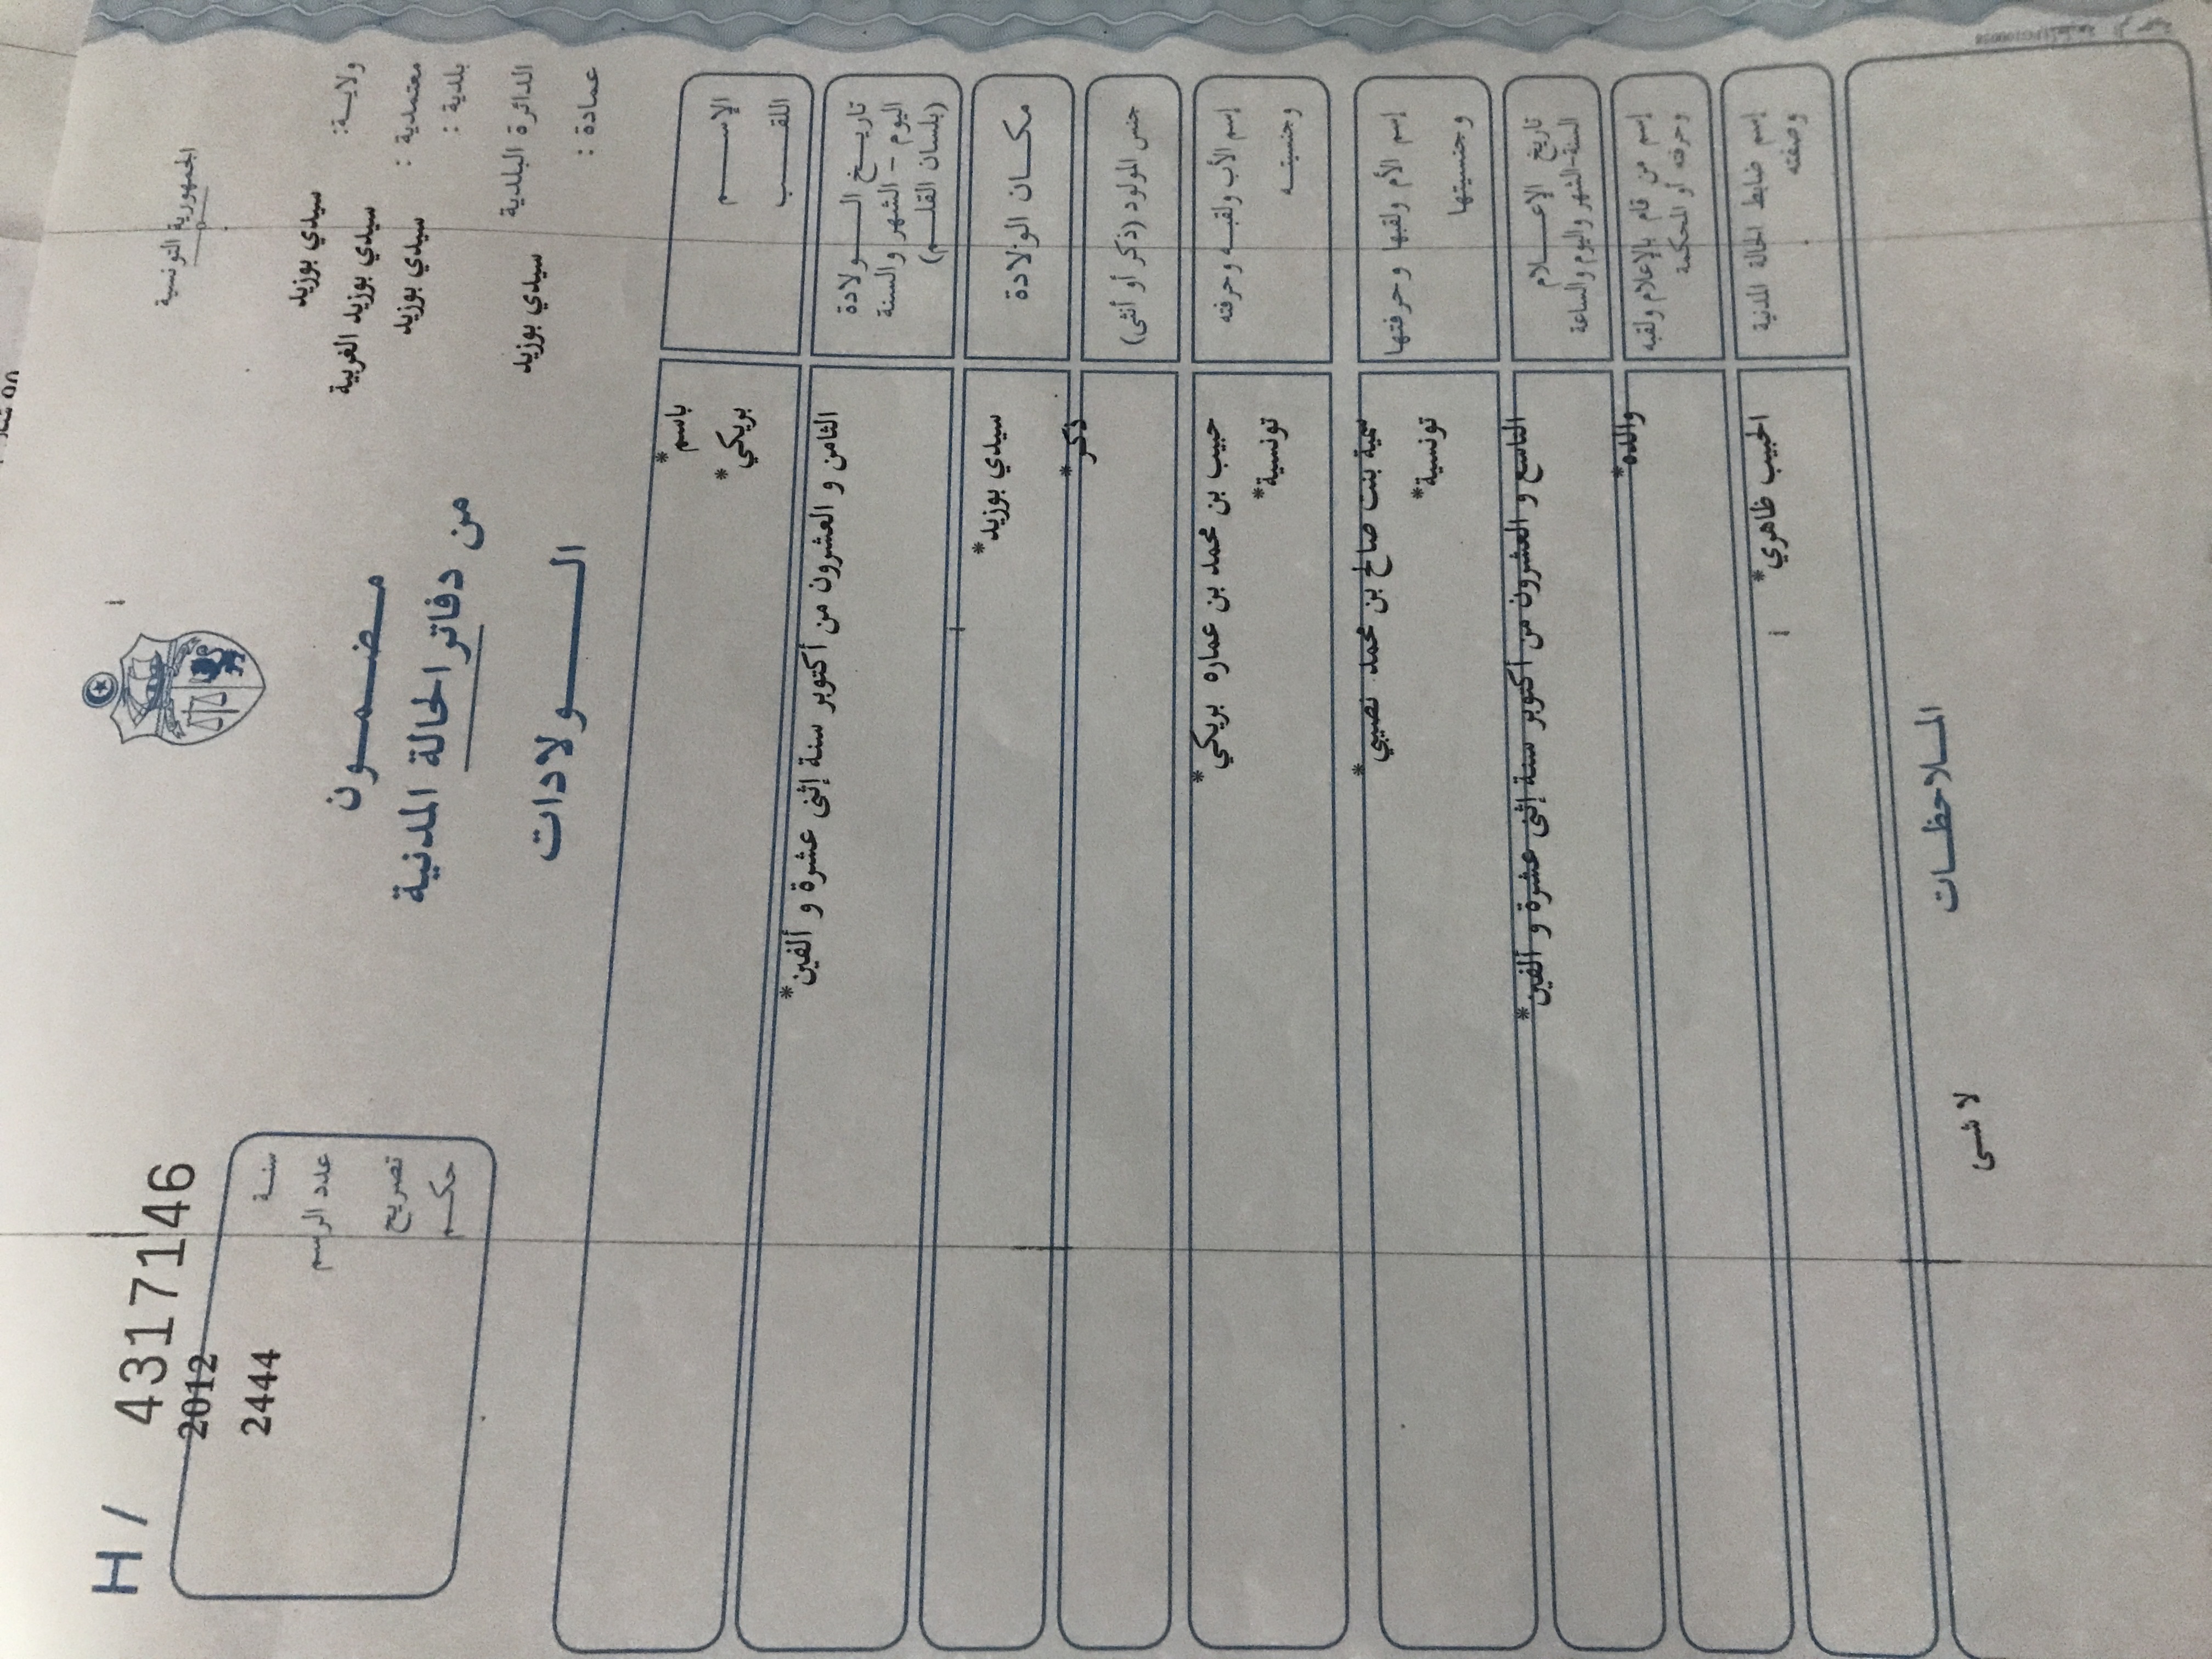 H / 43171146
الجمهورية التونسية
ولايــة: سيدي بوزيد
معتمدية : سيدي بوزيد الغربية
بلدية : سيدي بوزيد
الدائرة البلدية سيدي بوزيد
عمادة :
مـضـمـــون
من دفاتر الحالة المدنية
الـــولادات
سنــة 2012
عدد الرسم 2444
تصريح
حكــم
الإســـم باسم*
اللقــب بريكي*
تاريــخ الـــولادة
اليوم - الشهر والسنة
(بلسان القلــم)
الثامن و العشرون من أكتوبر سنة إثنى عشرة و ألفين*
مكــان الولادة سيدي بوزيد*
جنس المولود (ذكر أو أنثى) ذكر*
إسم الأب ولقبــه وحرفته حبيب بن محمد بن عماره بريكي*
وجنسيتــه تونسية*
إسم الأم ولقبها وحرفتها سمية بنت صالح بن محمد نصيبي*
وجنسيتها تونسية*
تاريخ الإعـــلام
السنة-الشهر واليوم والساعة
التاسع و العشرون من أكتوبر سنة إثنى عشرة و ألفين*
إسم من قام بالإعلام ولقبه
وحرفته أو المحكمة
والده*
إسم ضابط الحالة المدنية
وصفته
الحبيب ظاهري*
المــلاحظــات
لا شى